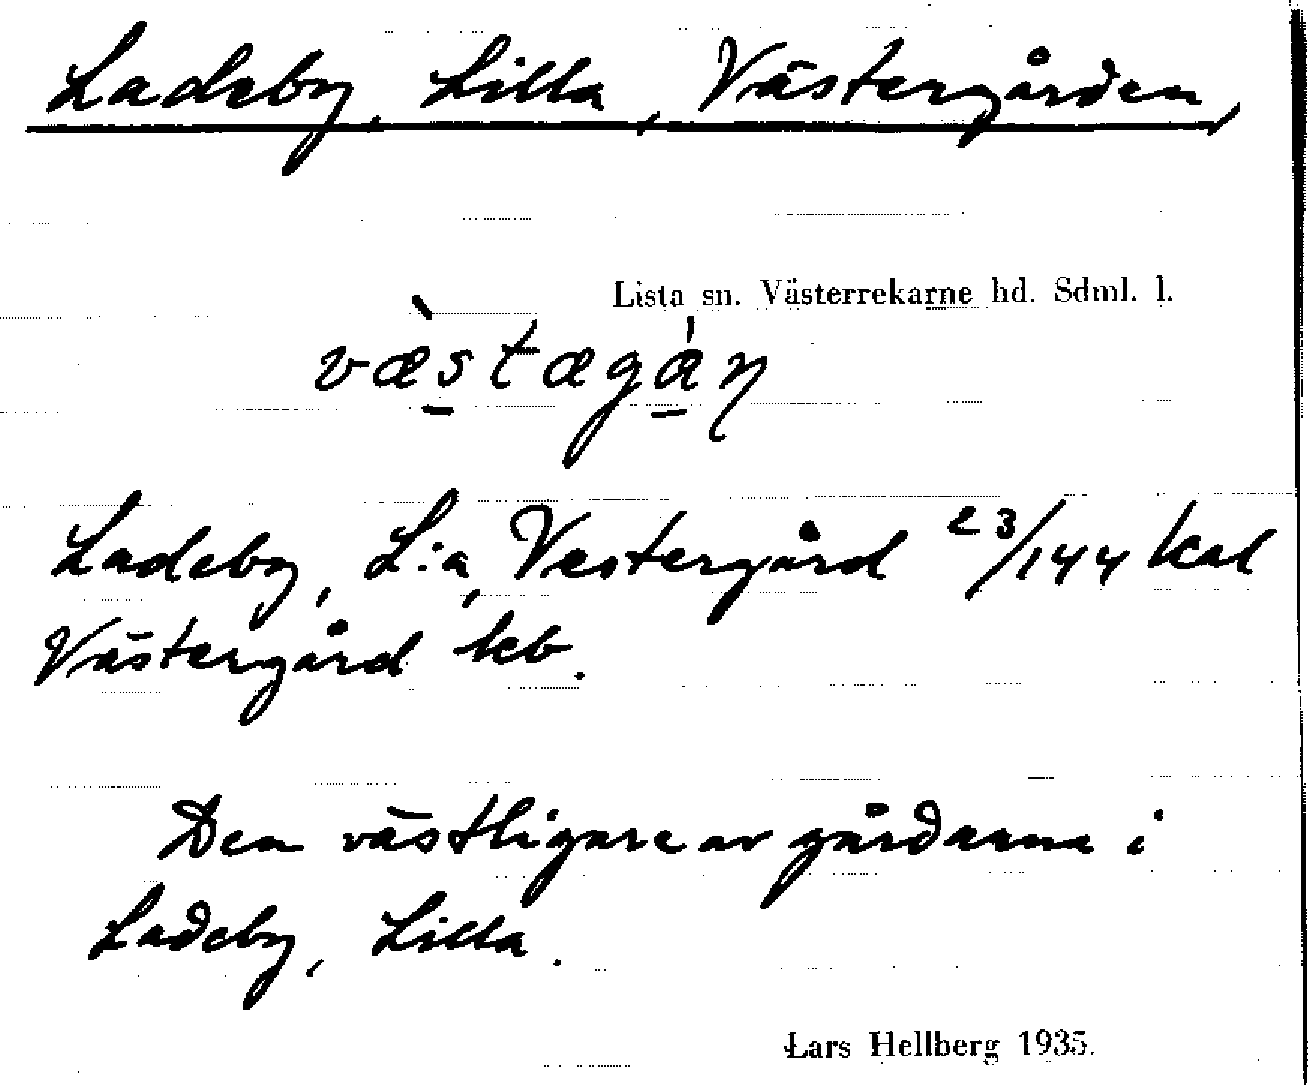 Ladeby, Lilla, Västergården,
Lista sn. Västerrekarne hd. Sdml. l.
væ̀stægán
Ladeby, L:a, Vestergård 23/144 kal
Västergård kb.
Den västligare av gårdarna i
Ladeby, Lilla.
Lars Hellberg 1935.